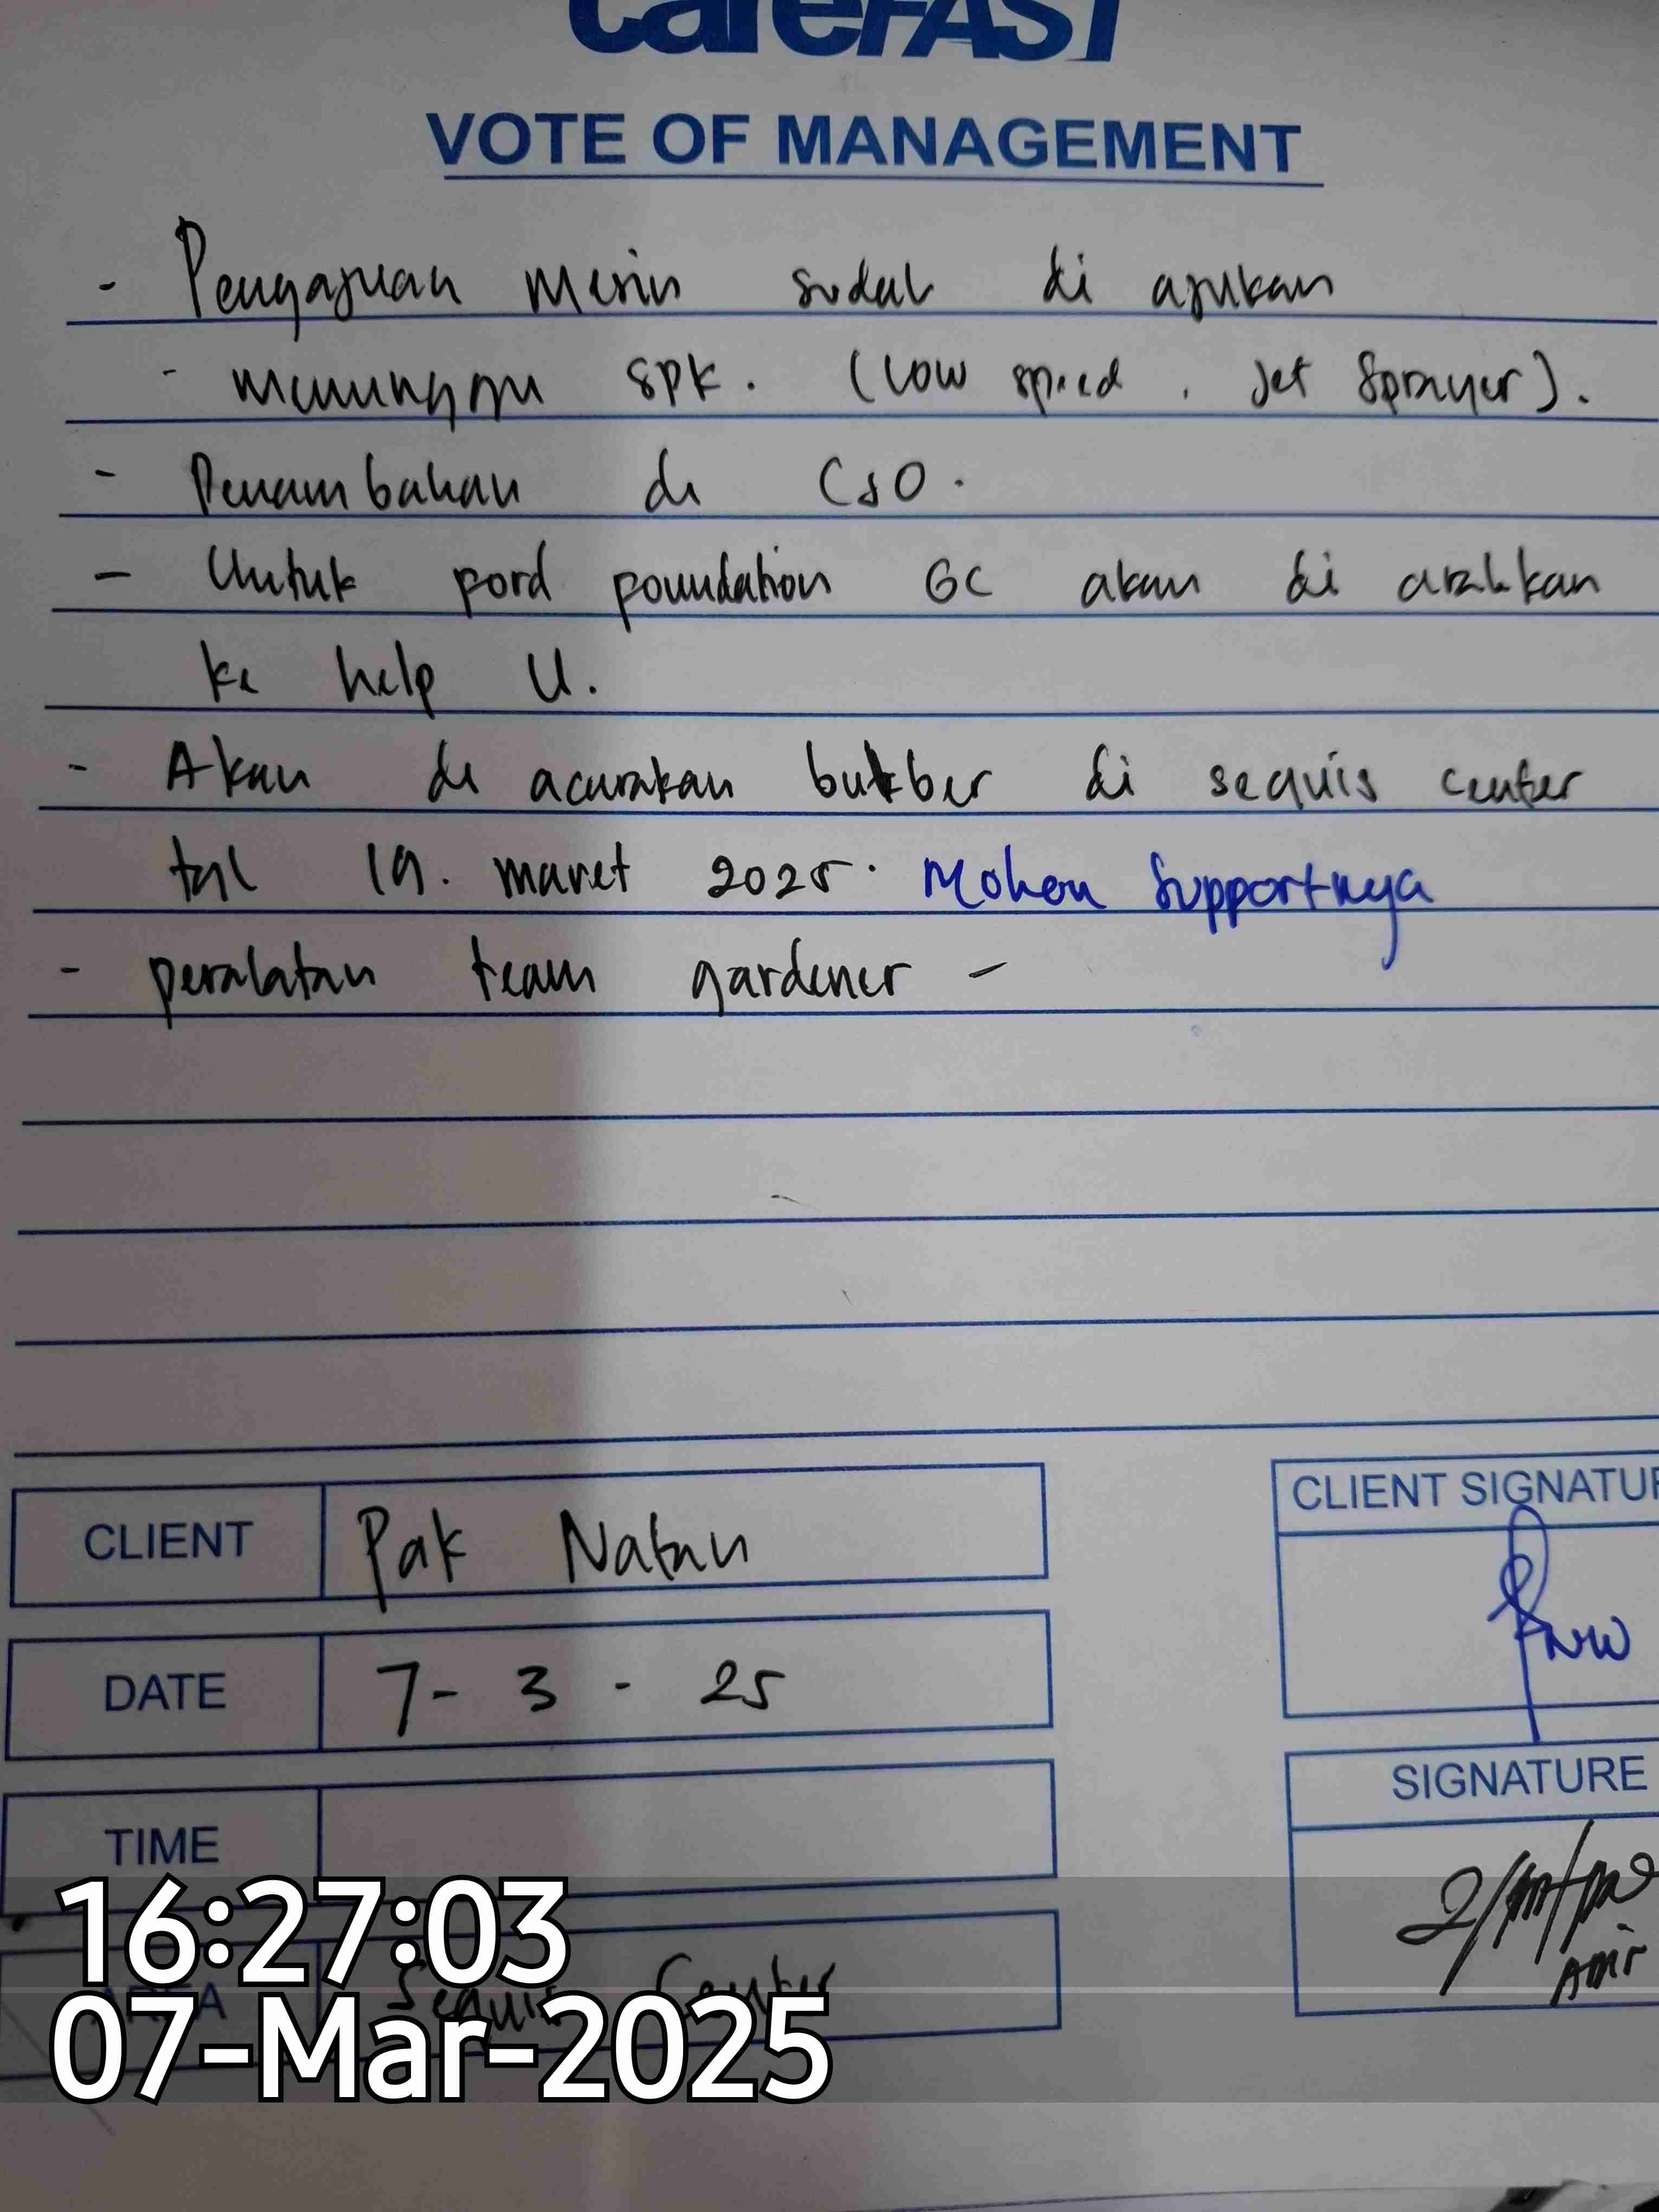 careFAST
VOTE OF MANAGEMENT
- Pengajuan mesin sudah di ajukan
- menunggu SPK. (Low speed, Jet Sprayer).
- Penambahan di CSO.
- Untuk ford foundation GC akan di arahkan
ke help U.
- Akan di acarakan bukber di sequis center
tgl 19. maret 2025. Mohon Supportnya
- peralatan team gardener -
CLIENT Pak Natan
DATE 7-3-25
TIME
AREA Sequis Center
CLIENT SIGNATUR
SIGNATURE
Amir
16:27:03
07-Mar-2025